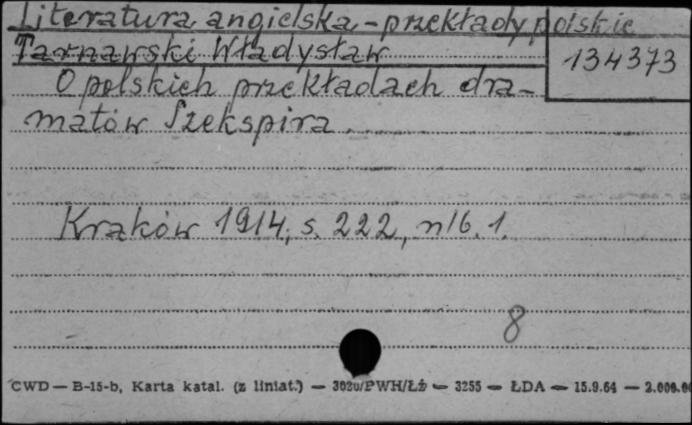 Literatura angielska - przekłady polskie
Tarnawski Władysław
134373
O polskich przekładach dra-
matów Szekspira.
Kraków 1914, s. 222, nlb. 1.
8
CWD — B-15-b, Karta katal. (z liniat.) — 3020/PWH/Łż — 3255 — ŁDA — 15.9.64 — 2.000.00